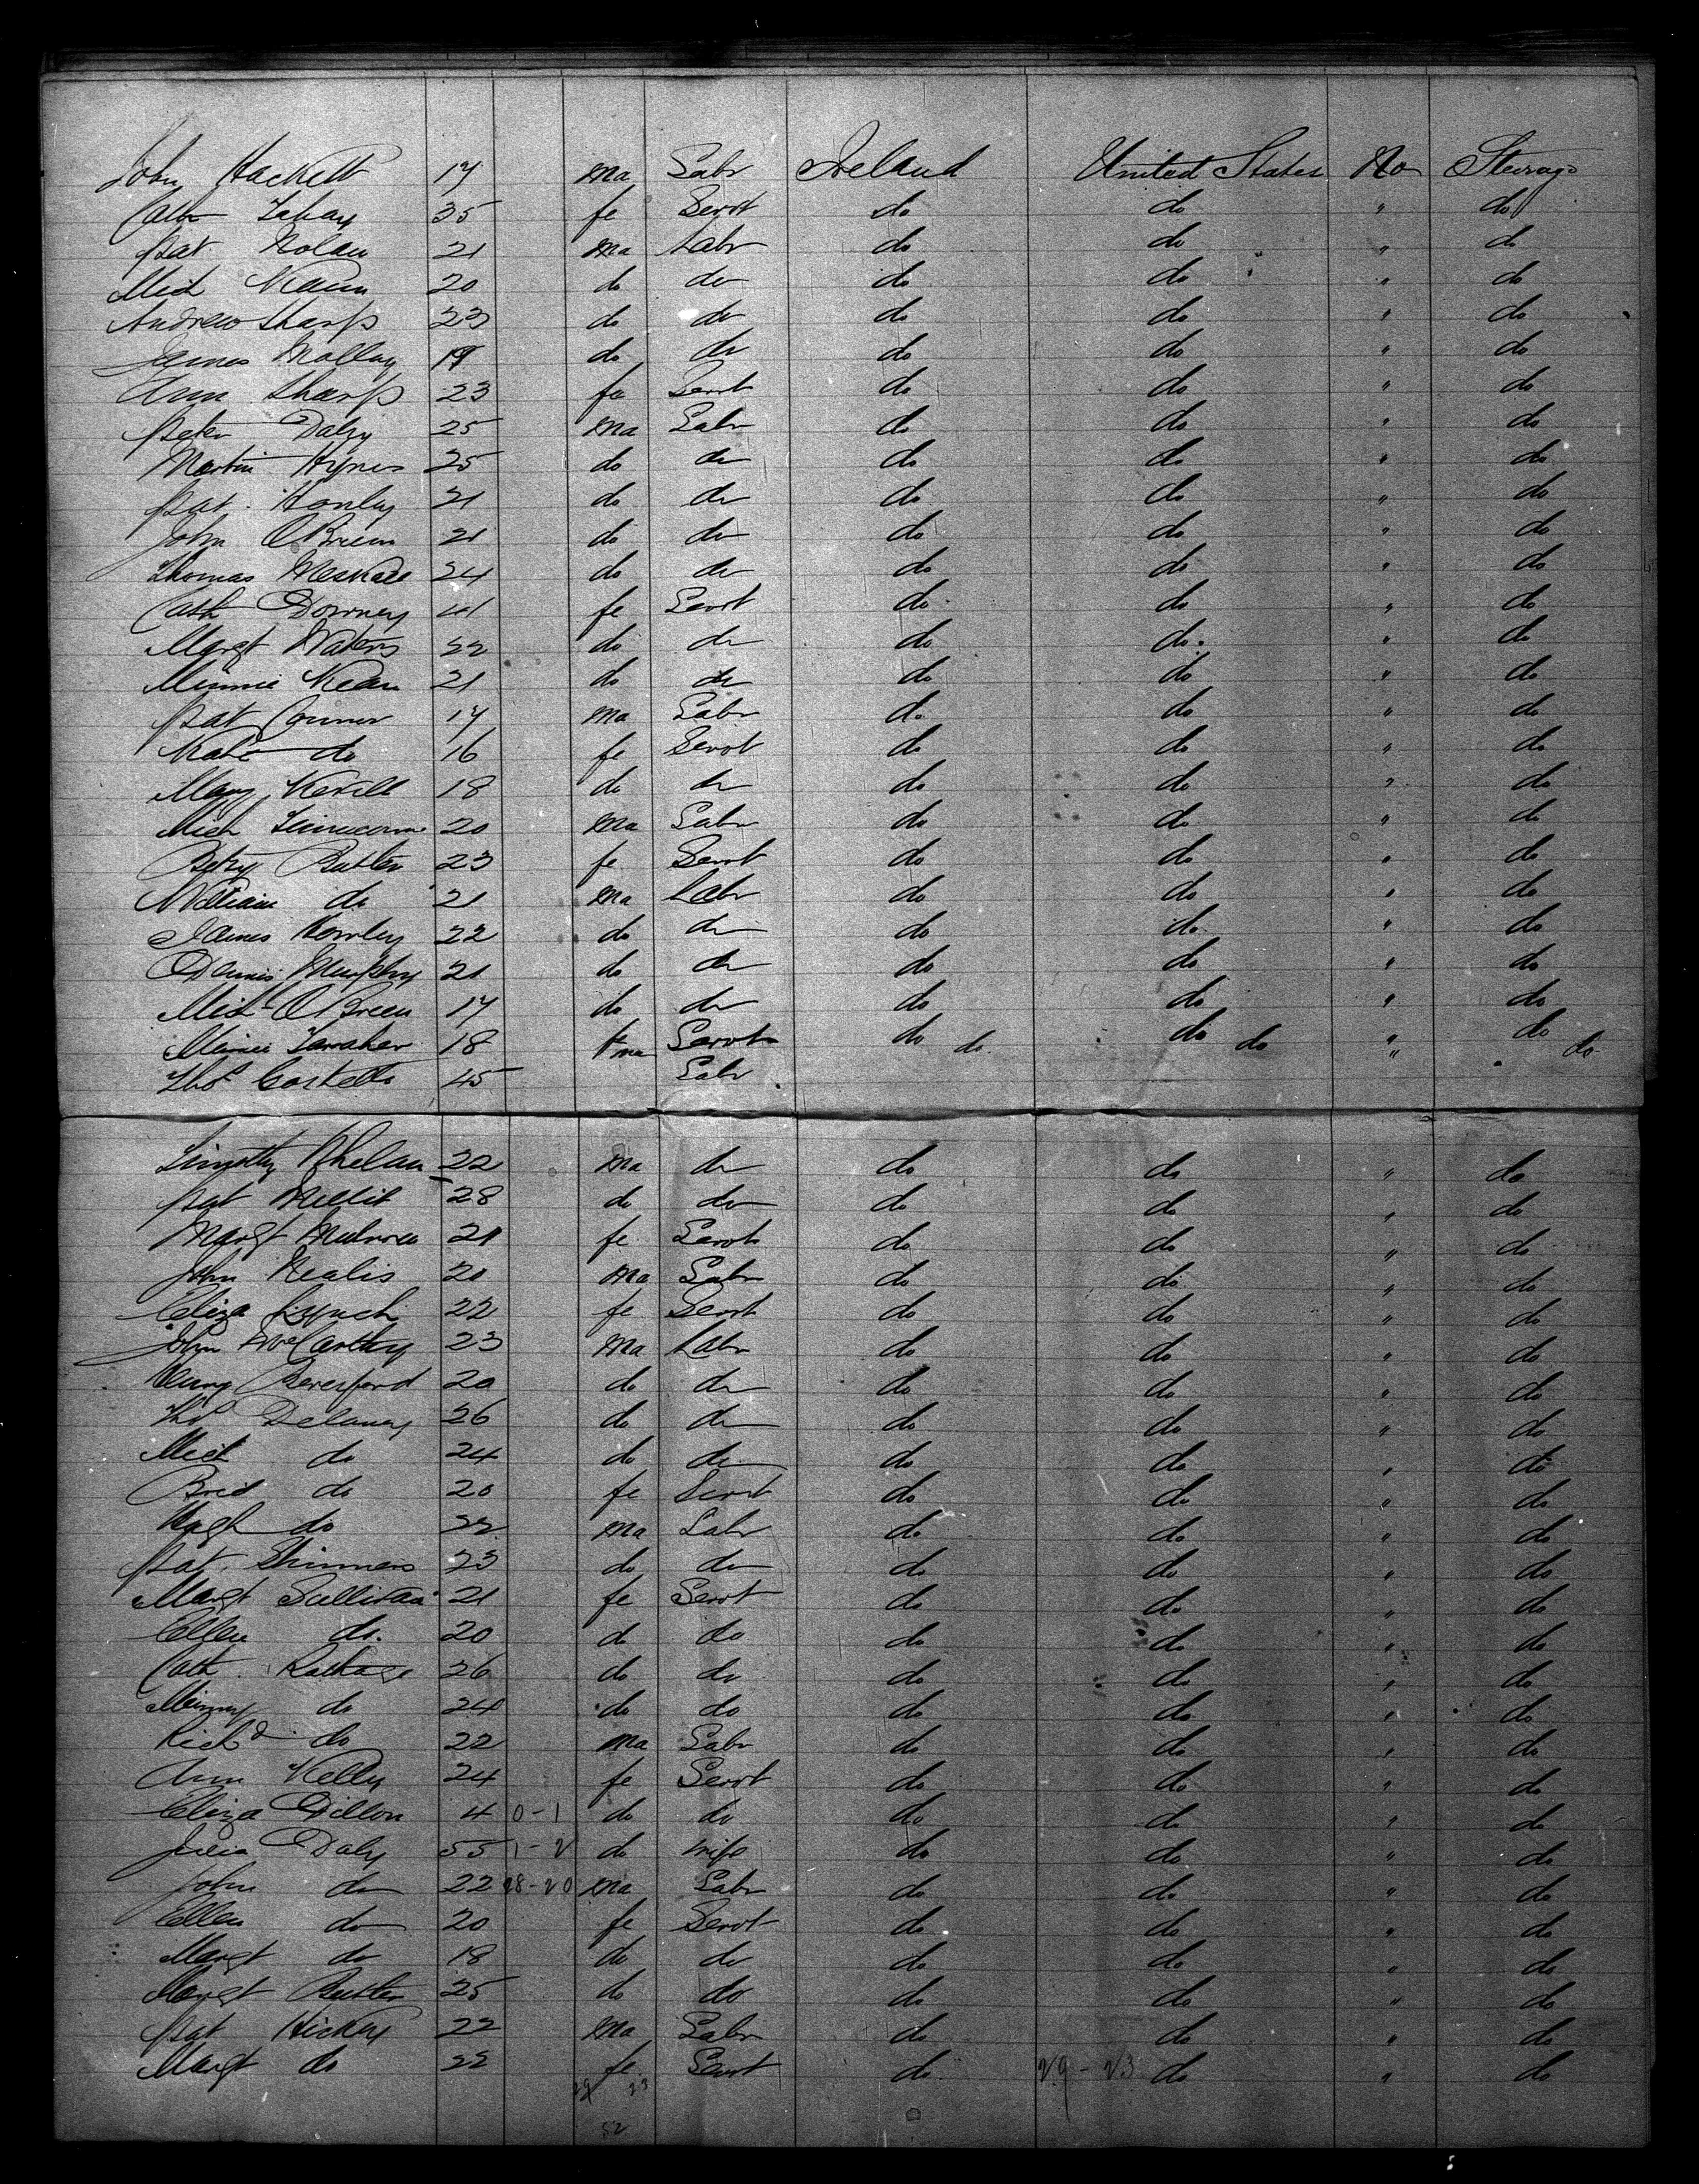 John Hackett 17 ma Labr Ireland United States No Steerage
Cath Lahay 35 fe Servt do do " do
Pat Nolan 21 ma Labr do do " do
Mich 20 do do do do " do
Andrew Sharp 23 do do do do " do
James Molloy 19 do do do do " do
Ann Sharp 23 fe Servt do do " do
Peter Daly 25 ma Labr do do " do
Martin Hynes 25 do do do do " do
Pat. Honley 21 do do do do " do
John OBrien 21 do do do do " do
Thomas 24 do do do do " do
Cath Downey 41 fe Servt do do " do
Margt Waters 22 do do do do " do
Minnie Kean 21 do do do do " do
Pat Connor 17 ma Labr do do " do
Kate do 16 fe Servt do do " do
Mary Nevill 18 do do do do " do
Mich 20 ma Labr do do " do
Betsy Butler 23 fe Servt do do " do
William do 21 ma Labr do do " do
James 22 do do do do " do
Dennis Murphy 21 do do do do " do
Mich OBreen 17 do do do do " do
18 Servt do do " do
Thos Costello 45 ma Labr do do " do
Timothy Phelan 22 ma do do do " do
Pat 28 do do do do " do
Margt 21 fe Servt do do " do
John Nealis 20 ma Labr do do " do
Eliza Lynch 22 fe Servt do do " do
John McCarthy 23 ma Labr do do " do
Beresford 20 do do do do " do
Thos Delaney 26 do do do do " do
Mich do 24 do do do do " do
Brid do 20 fe Servt do do " do
Hugh do 22 ma Labr do do " do
Pat. Shinners 23 do do do do " do
Margt Sullivan 21 fe Servt do do " do
Ellen do. 20 do do do do " do
Cath 26 do do do do " do
do 24 do do do do " do
Richd do 22 ma Labr do do " do
Ann Kelly 24 fe Servt do do " do
Eliza Dillon 4 0-1 do do do do " do
Julia Daly 55 1-2 do wife do do " do
John do 22 28-20 ma Labr do do " do
Ellen do 20 fe Servt do do " do
Margt do 18 do do do do " do
Margt Butler 25 do do do do " do
Pat Hickey 22 ma Labr do do " do
Margt do 22 fe Servt do 29-23 do " do
29 23
52